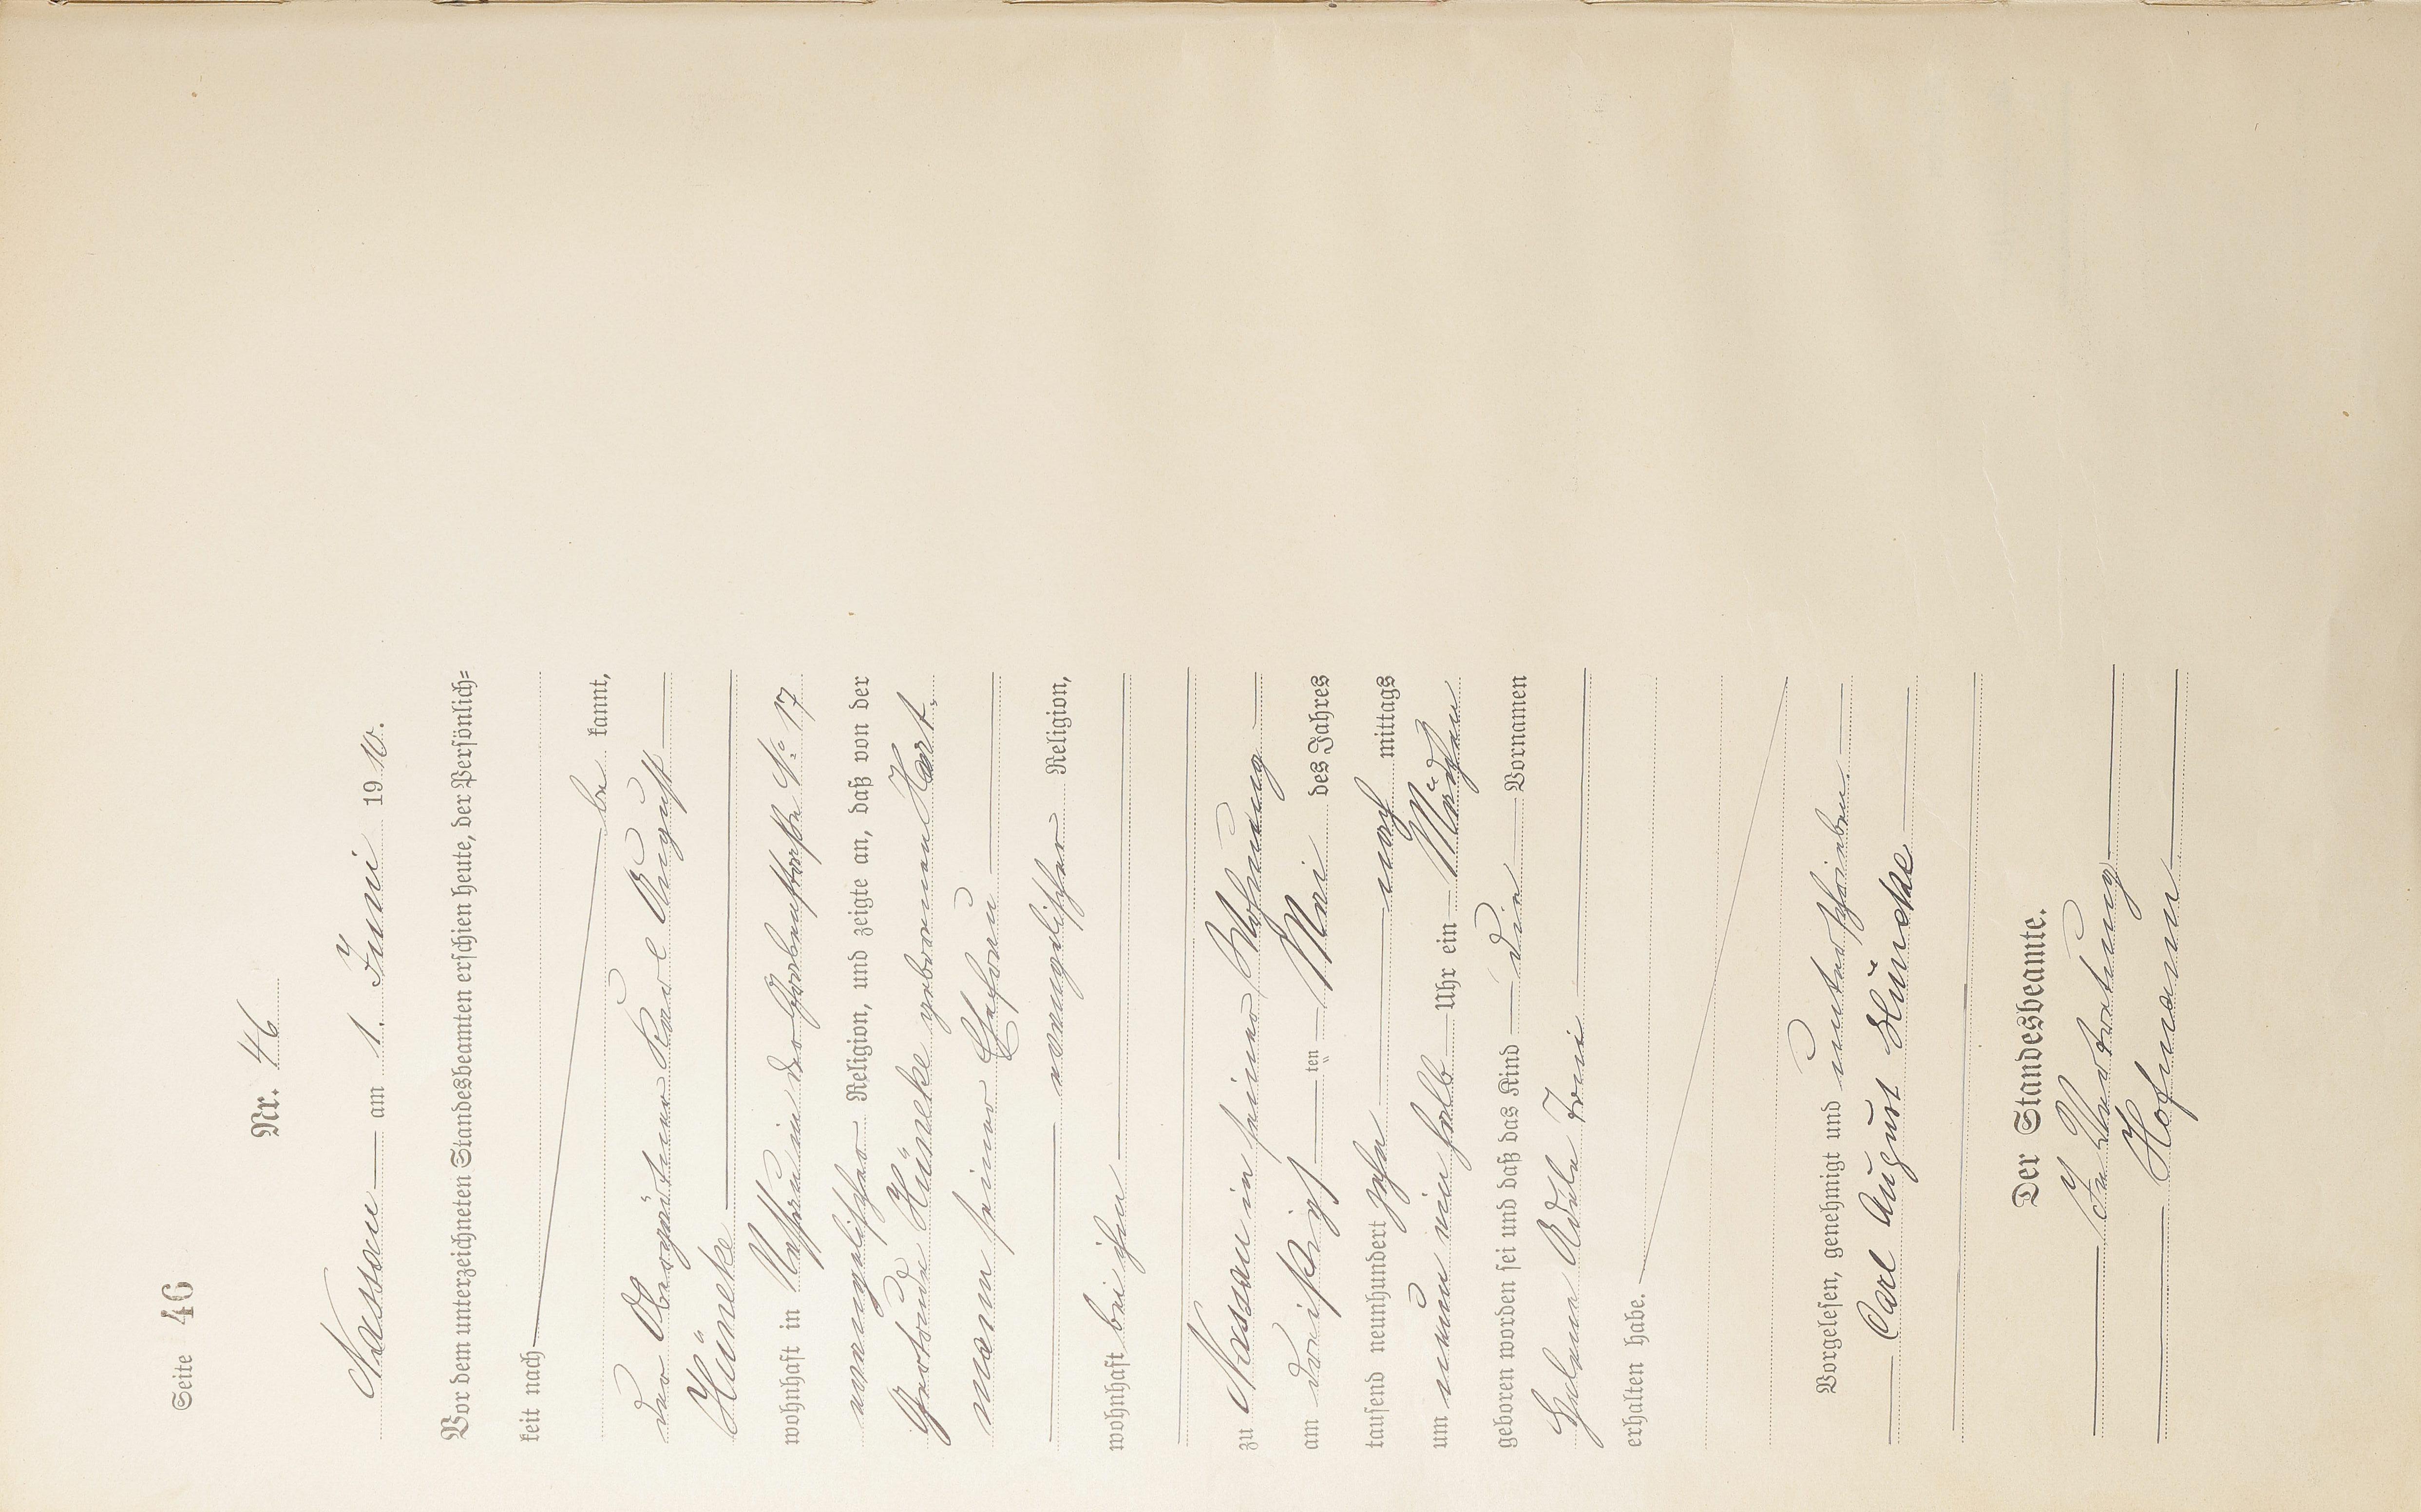 Seite 46
Nr. 46
Nassau am 1. Juni 1910.
Vor dem unterzeichneten Standesbeamten erschien heute, der Persönlich-
keit nach
be kannt,
der Obergärtner Karl August
Hüneke
wohnhaft in Nassau in der Gerbenstraße No. 17
evangelischer Religion, und zeigte an, daß von der
Gertrude Hüneke geborenen Hart-
mann seiner Ehefrau
evangelischer Religion,
wohnhaft bei ihm
zu Nassau in seiner Wohnung
am dreißigsten Mai des Jahres
tausend neunhundert zehn nach mittags
um neun ein halb Uhr ein Mädchen
geboren worden sei und daß das Kind die Vornamen
Helene Adele Irene
erhalten habe.
Vorgelesen, genehmigt und unterschrieben.
Carl August Hüneke
Der Standesbeamte.
In Vertretung
Hofmann